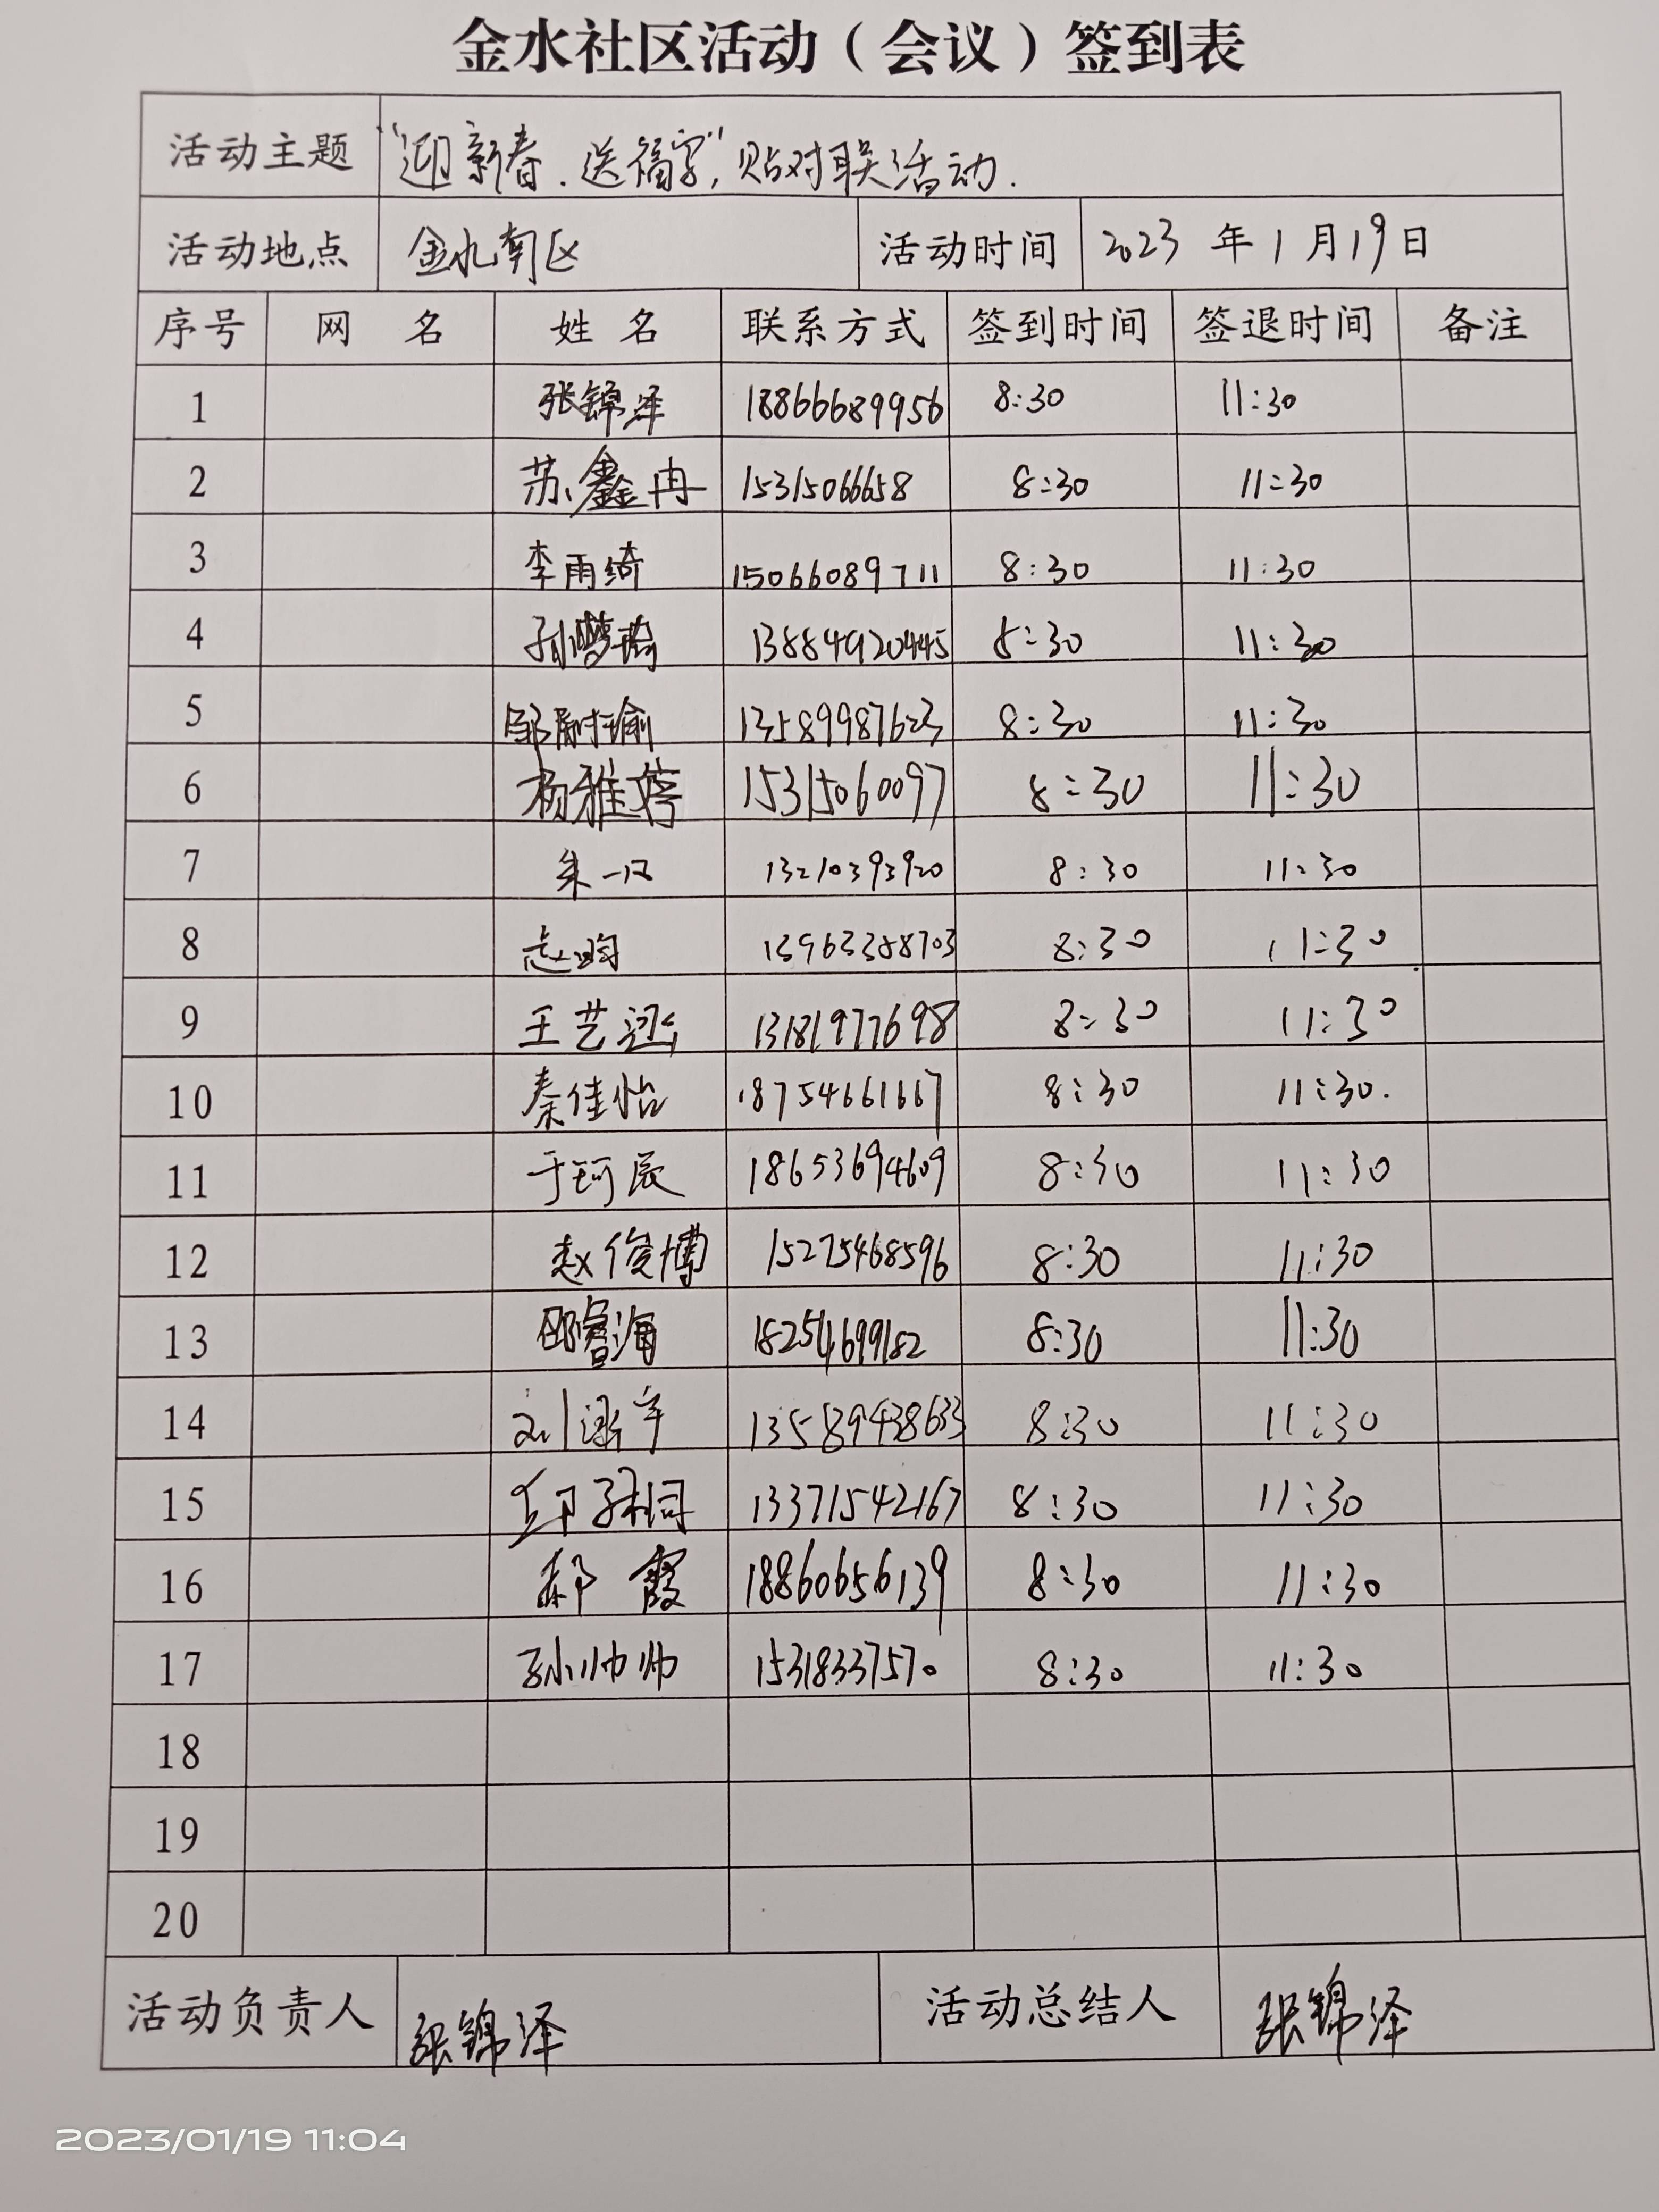 金水社区活动（会议）签到表
活动主题 “迎新春.送福字”,贴对联活动.
活动地点 金水南区 活动时间 2023 年 1 月 19 日
序号 网 名 姓 名 联系方式 签到时间 签退时间 备注
1 张锦泽 18866689956 8:30 11:30
2 苏鑫冉 15315066658 8:30 11:30
3 李雨绮 15066089711 8:30 11:30
4 孙梦瑜 13884920445 8:30 11:30
5 邹尉瑜 13589987623 8:30 11:30
6 杨雅婷 15315060097 8:30 11:30
7 朱一凡 13210393920 8:30 11:30
8 13963388703 8:30 11:30
9 王艺 13181977698 8:30 11:30
10 秦佳怡 18754661667 8:30 11:30.
11 于珂辰 18653694609 8:30 11:30
12 赵俊博 15275468596 8:30 11:30
13 邵睿海 18254699182 8:30 11:30
14 刘 宇 13589438633 8:30 11:30
15 子桐 13371542167 8:30 11:30
16 郝霞 18860656139 8:30 11:30
17 孙帅帅 15318337570 8:30 11:30
18
19
20
活动负责人 张锦泽 活动总结人 张锦泽
2023/01/19 11:04